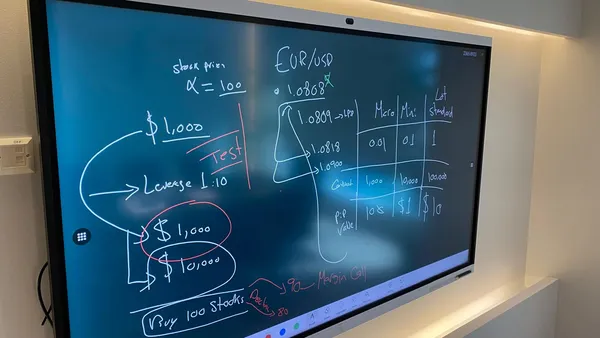 stock price
α = 100
$ 1,000
Test
Leverage 1:10
$ 1,000
$ 10,000
Buy 100 Stocks
90 Margin Call
80
EUR/USD
1.0808
1.0809
1.0818
1.0900
Lot
Micro Mini Standard
0.01 0.1 1
Contract 1,000 10,000 100,000
pip value $1 $10